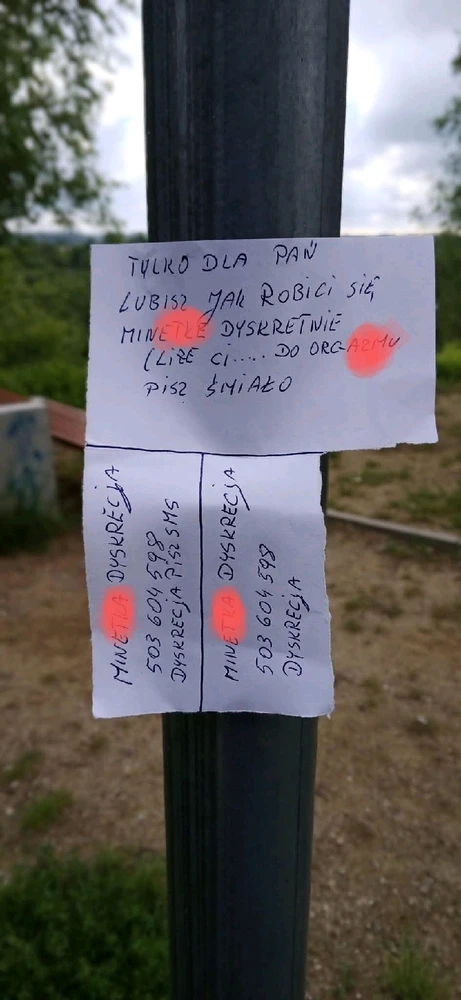 TYLKO DLA PAŃ
LUBISZ JAK ROBICI SIĘ
MINETKĘ DYSKRETNIE
(LIŻE CI..... DO ORGAZMU
PISZ ŚMIAŁO
MINETKA DYSKRECJA
503 604 598
DYSKRECJA PISZ SMS
MINETKA DYSKRECJA
503 604 598
DYSKRECJA